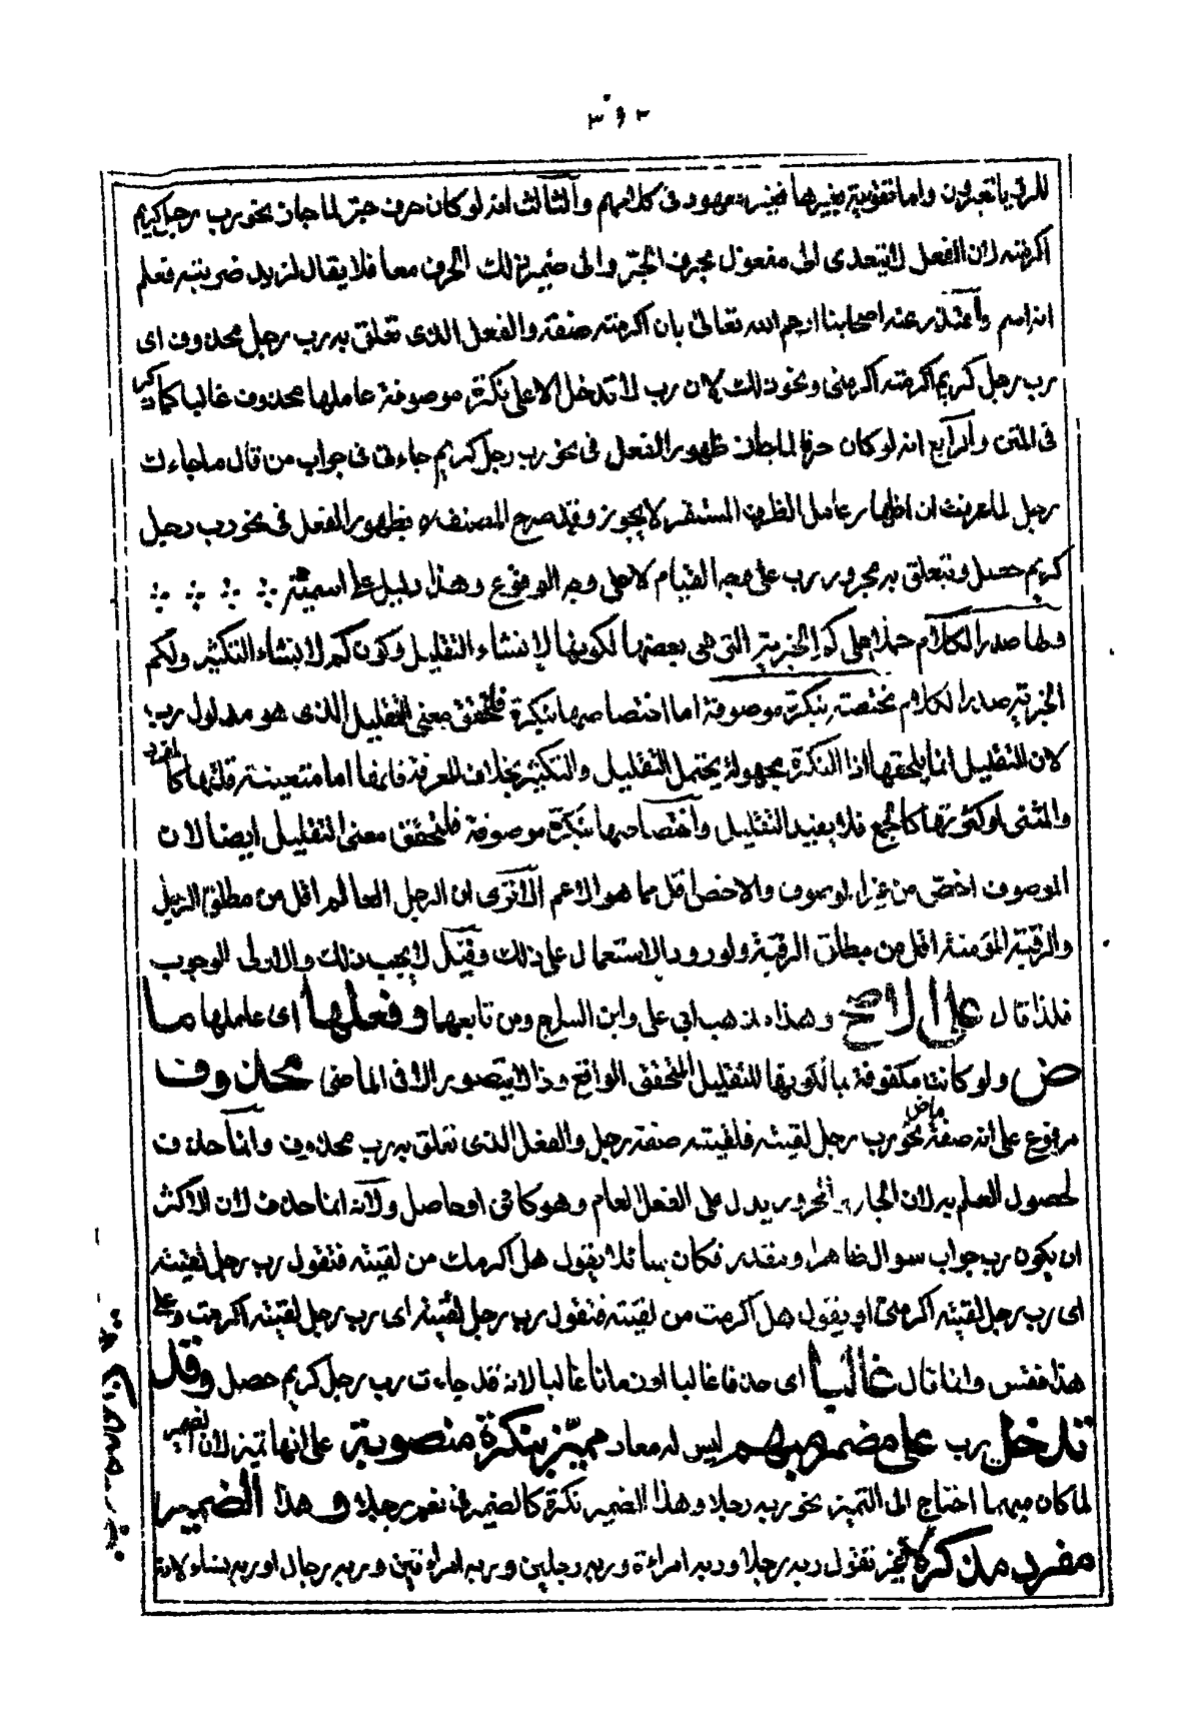 ٣٩٢
واما تقوية بغيرها فغير معهود فى كلامهم والثالث انه لو كان حرف جر لما جاز نحو رب رجل كريم
اكرمته لان الفعل لا يتعدى الى مفعول بحرف الجر والى ضمير ذلك الحرف معا فلا يقال لزيد ضربته فعلم
انه اسم واعتذر عنه اصحابنا ارحم الله تعالى بان اكرمته صفة والفعل الذى تعلق به رب رجل محذوف اى
رب رجل كريم اكرمته اكرمنى ونحو ذلك لان رب لا تدخل الا على نكرة موصوفة عاملها محذوف غالبا كما ذكر
فى المتن والرابع انه لو كان حرفا لما جاز ظهور الفعل فى نحو رب رجل كريم جاءنى فى جواب من قال ما جاءك
رجل لما عرفت ان اظهار عامل الظرف المستقر لا يجوز وقد صرح المصنف بظهور الفعل فى نحو رب رجل
كريم حصل وتتعلق به مجرور رب على وجه القيام لا على وجه الوقوع وهذا دليل على اسميته
ولها صدر الكلام حملا على كم الخبرية التى هى بعضها لكونها لانشاء التقليل وكون كم لانشاء التكثير ولكم
الخبرية صدر الكلام مختصة بنكرة موصوفة اما اختصاصها بنكرة فلتحقق معنى التقليل الذى هو مدلول رب
لان التقليل انما يلحقها اذا النكرة مجهولة يحتمل التقليل والتكثير بخلاف المعرفة فانها اما متعينة قلتها كالمفرد
والمثنى او كثرتها كالجمع فلا يفيد التقليل واختصاصها بنكرة موصوفة فلتحقق معنى التقليل ايضا لان
الموصوف اخص من غير الموصوف والاخص اقل مما هو الاعم الا ترى ان الرجل العالم اقل من مطلق الرجل
والرقبة المؤمنة اقل من مطلق الرقبة ولورود الاستعمال على ذلك وقيل لا يجب ذلك والاولى الوجوب
فلذا قال على الاصح وهذا مذهب ابى على وابن السراج ومن تابعهما وفعلها اى عاملها ما
ض ولو كانت مكفوفة بما لكونها للتقليل المتحقق الواقع وذا لا يتصور الا فى الماضى محذوف
مرفوع على انه صفة ماض نحو رب رجل لقيته فلقيته صفة رجل والفعل الذى تعلق به رب محذوف وانما حذف
لحصول العلم به لان الجار والمجرور يدل على الفعل العام وهو كائن او حاصل ولانه انما حذف لان الاكثر
ان يكون رب جواب سوال ظاهر او مقدر فكان سائلا يقول هل اكرمك من لقيته فتقول رب رجل لقيته
اى رب رجل لقيته اكرمنى او يقول هل اكرمت من لقيته فتقول رب رجل لقيته اى رب رجل لقيته اكرمت وعلى
هذا فقس وانما قال غالبا اى حذفا غالبا او زمانا غالبا لانه قد جاءت رب رجل كريم حصل وقد
تدخل رب على مضمر مبهم ليس له معاد مميز بنكرة منصوبة على انها تميز لان الضمير
لما كان مبهما احتاج الى التميز نحو ربه رجلا وهذا الضمير نكرة كالضمير فى نعم رجلا وهذا الضمير
مفرد مذكر لا غير تقول ربه رجلا وربه امراءة وربه رجلين وربه امراءتين وربه رجال او ربه نساء لانه